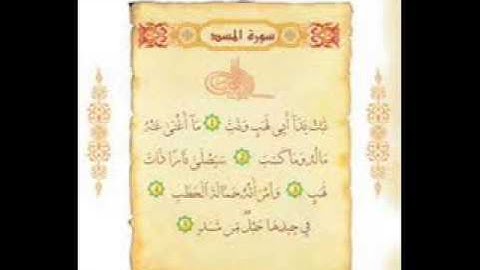 سورة المسد
تَبَّتْ يَدَآ أَبِي لَهَبٍ وَتَبَّ ١ مَآ أَغْنَىٰ عَنْهُ
مَالُهُ وَمَا كَسَبَ ٢ سَيَصْلَىٰ نَارًا ذَاتَ
لَهَبٍ ٣ وَامْرَأَتُهُ حَمَّالَةَ الْحَطَبِ ٤
فِي جِيدِهَا حَبْلٌ مِّن ٥